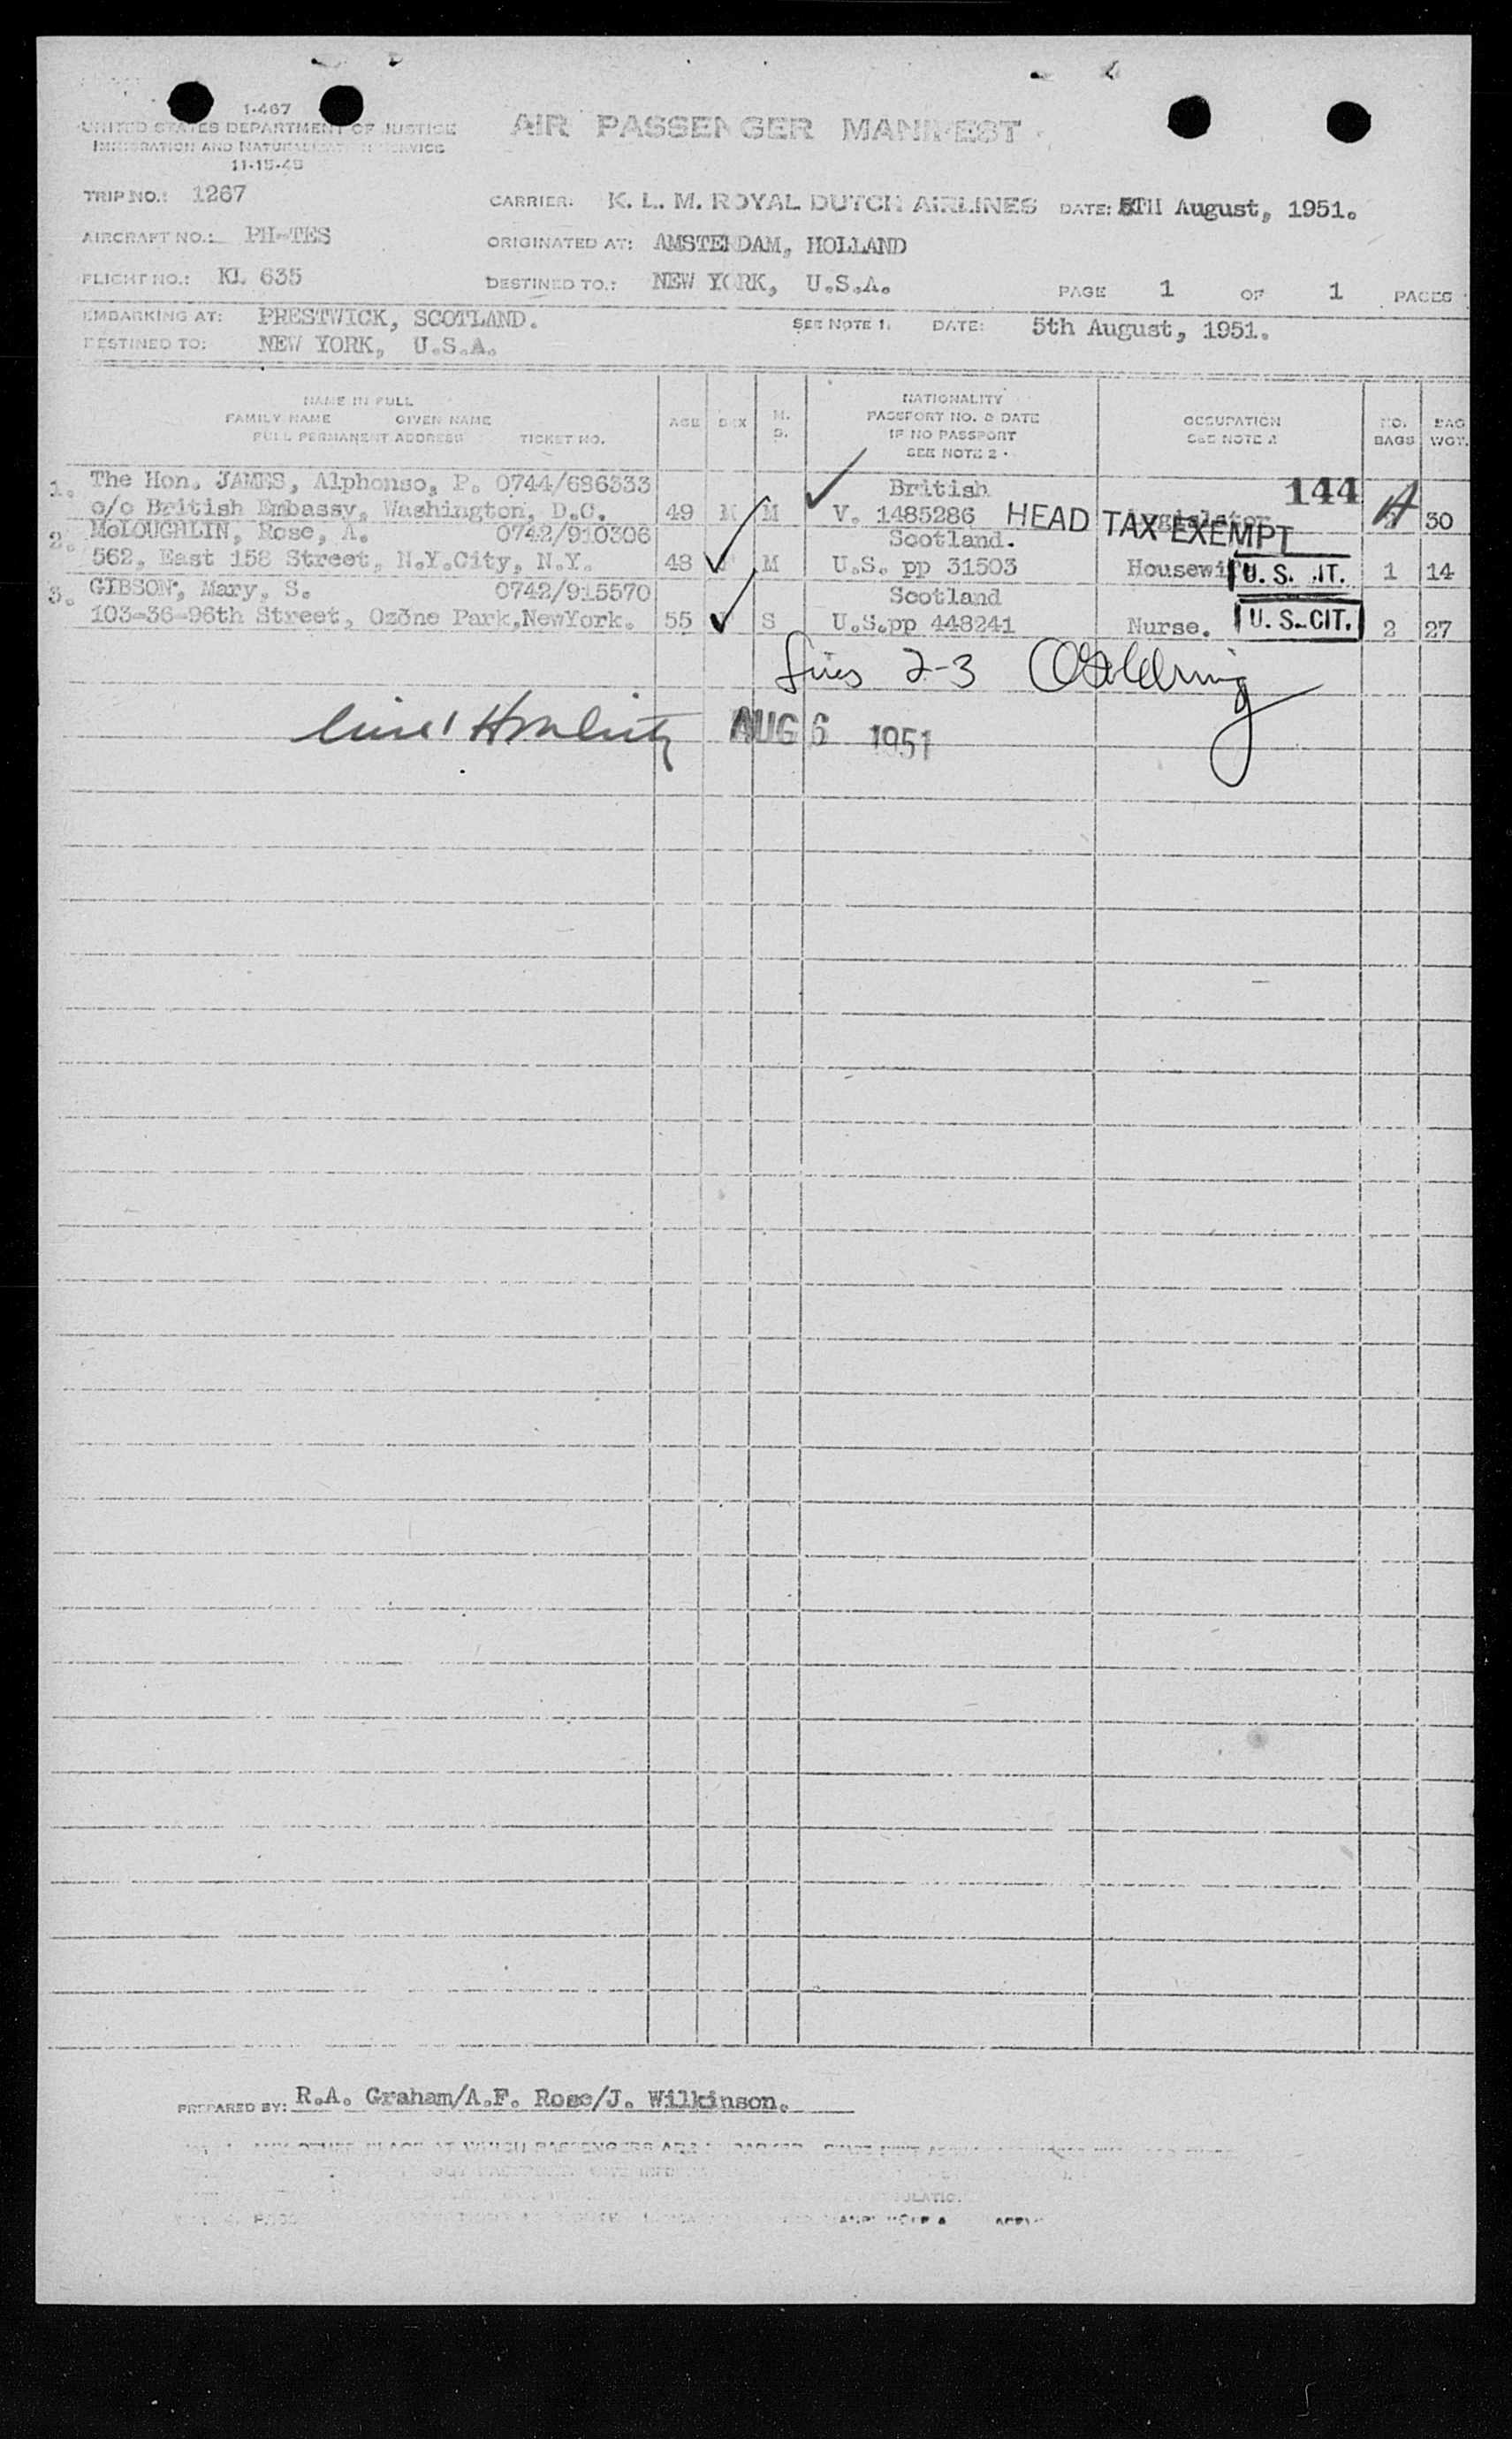 I-467
UNITED STATES DEPARTMENT OF JUSTICE
IMMIGRATION AND NATURALIZATION SERVICE
11-15-48
AIR PASSENGER MANIFEST
TRIP NO.: 1267
CARRIER: K. L. M. ROYAL DUTCH AIRLINES DATE: 5TH August, 1951.
AIRCRAFT NO.: PH-TES
ORIGINATED AT: AMSTERDAM, HOLLAND
FLIGHT NO.: KL 635
DESTINED TO.: NEW YORK, U.S.A.
PAGE 1 OF 1 PAGES
EMBARKING AT: PRESTWICK, SCOTLAND.
SEE NOTE 1. DATE: 5th August, 1951.
DESTINED TO: NEW YORK, U.S.A.
NAME IN FULL
FAMILY NAME GIVEN NAME
FULL PERMANENT ADDRESS TICKET NO.
AGE
SEX
M.
S.
NATIONALITY
PASSPORT NO. & DATE
IF NO PASSPORT
SEE NOTE 2
OCCUPATION
SEE NOTE 2
NO.
BAGS
BAG
WGT.
1. The Hon. JAMES, Alphonso, P. 0744/686333 British 144
c/o British Embassy, Washington, D.C. 49 M M V. 1485286 HEAD TAX EXEMPT Legislator A 30
2. McLOUGHLIN, Rose, A. 0742/910306 Scotland.
562, East 158 Street, N.Y.City, N.Y. 48 M U.S. pp 31503 Housewife U. S. IT. 1 14
3. GIBSON, Mary, S. 0742/915570 Scotland
103-36-96th Street, Ozone Park, NewYork. 55 S U.S.pp 448241 Nurse. U. S. CIT. 2 27
lines 2-3
line 1
AUG 6 1951
PREPARED BY: R.A. Graham/A.F. Rose/J. Wilkinson.